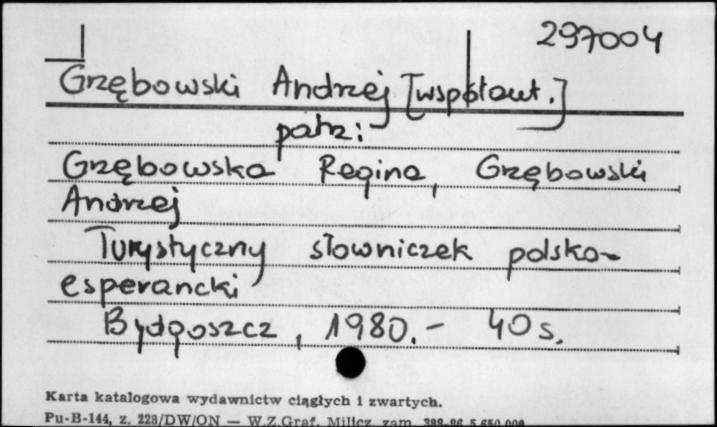 297004
Grzębowski Andrzej [współaut.]
patrz:
Grzębowska Regina, Grzębowski
Andrzej
Turystyczny słowniczek polsko-
esperancki
Bydgoszcz, 1980.- 40 s.
Karta katalogowa wydawnictw ciągłych i zwartych.
Pu-B-144, z. 223/DW/ON — W.Z.Graf. Milicz, zam.